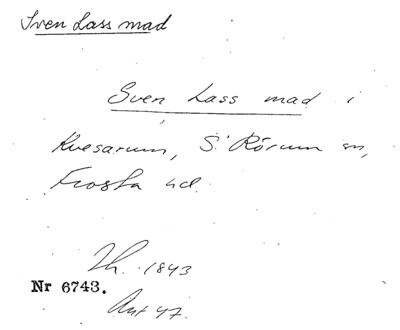 Sven Lass mad
Sven Lass mad i
Kvesarum, S. Rörum sn,
Frosta hd.
Th. 1843
Nr 6743.
Ant 47.